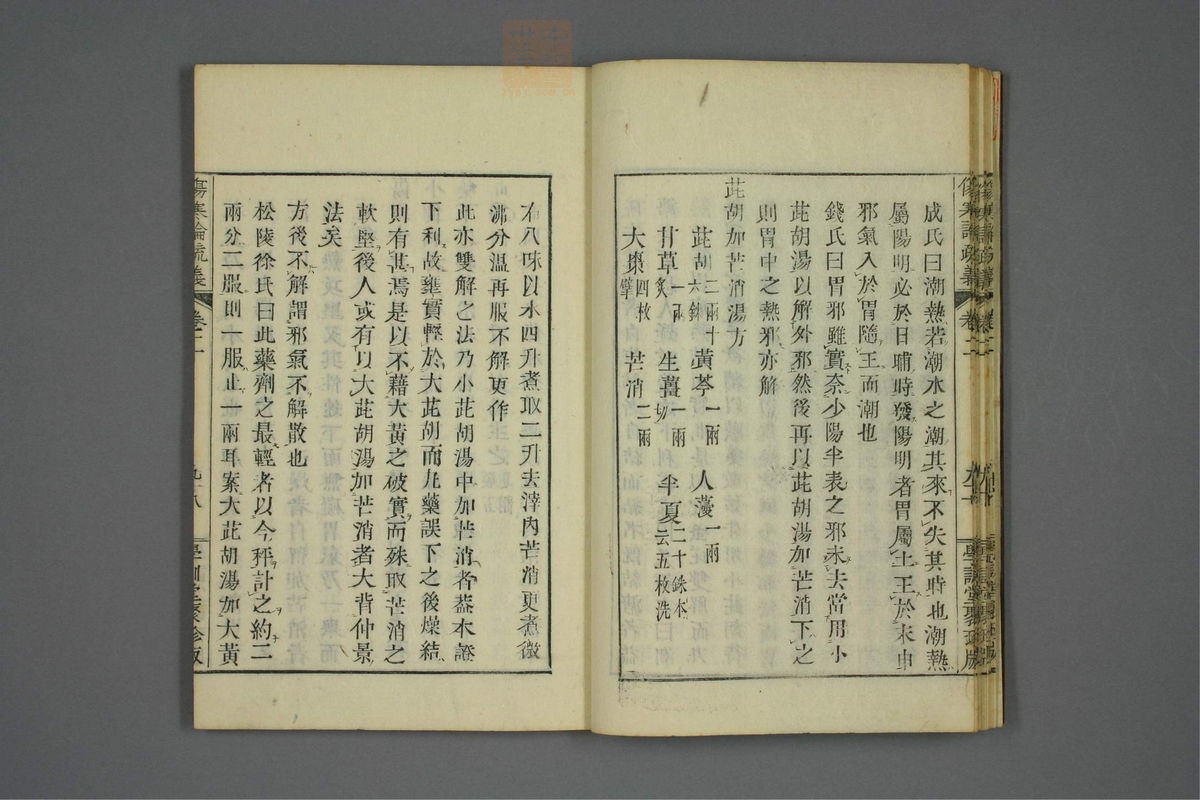 成氏曰潮熱若潮水之潮其來不失其時也潮熱
屬陽明必於日晡時發陽明者胃屬土王於未申
邪氣入於胃隨王而潮也
錢氏曰胃邪雖實奈少陽半表之邪未去當用小
茈胡湯以解外邪然後再以茈胡湯加芒消下之
則胃中之熱邪亦解
茈胡加芒消湯方
茈胡二兩十六銖 黃芩一兩 人蓡一兩
甘草一兩炙 生薑一兩切 半夏二十銖本云五枚洗
大棗四枚擘 芒消二兩
右八味以水四升煮取二升去滓內芒消更煮微
沸分溫再服不解更作
此亦雙解之法乃小茈胡湯中加芒消者蓋本證
下利故雍實輕於大茈胡而丸藥誤下之後燥結
則有甚焉是以不藉大黃之破實而殊取芒消之
軟堅後人或有以大茈胡湯加芒消者大背仲景
法矣
方後不解謂邪氣不解散也
松陵徐氏曰此藥劑之最輕者以今秤計之約二
兩分二服則一服止一兩耳案大茈胡湯加大黃
傷寒論疏義
卷二
九十八